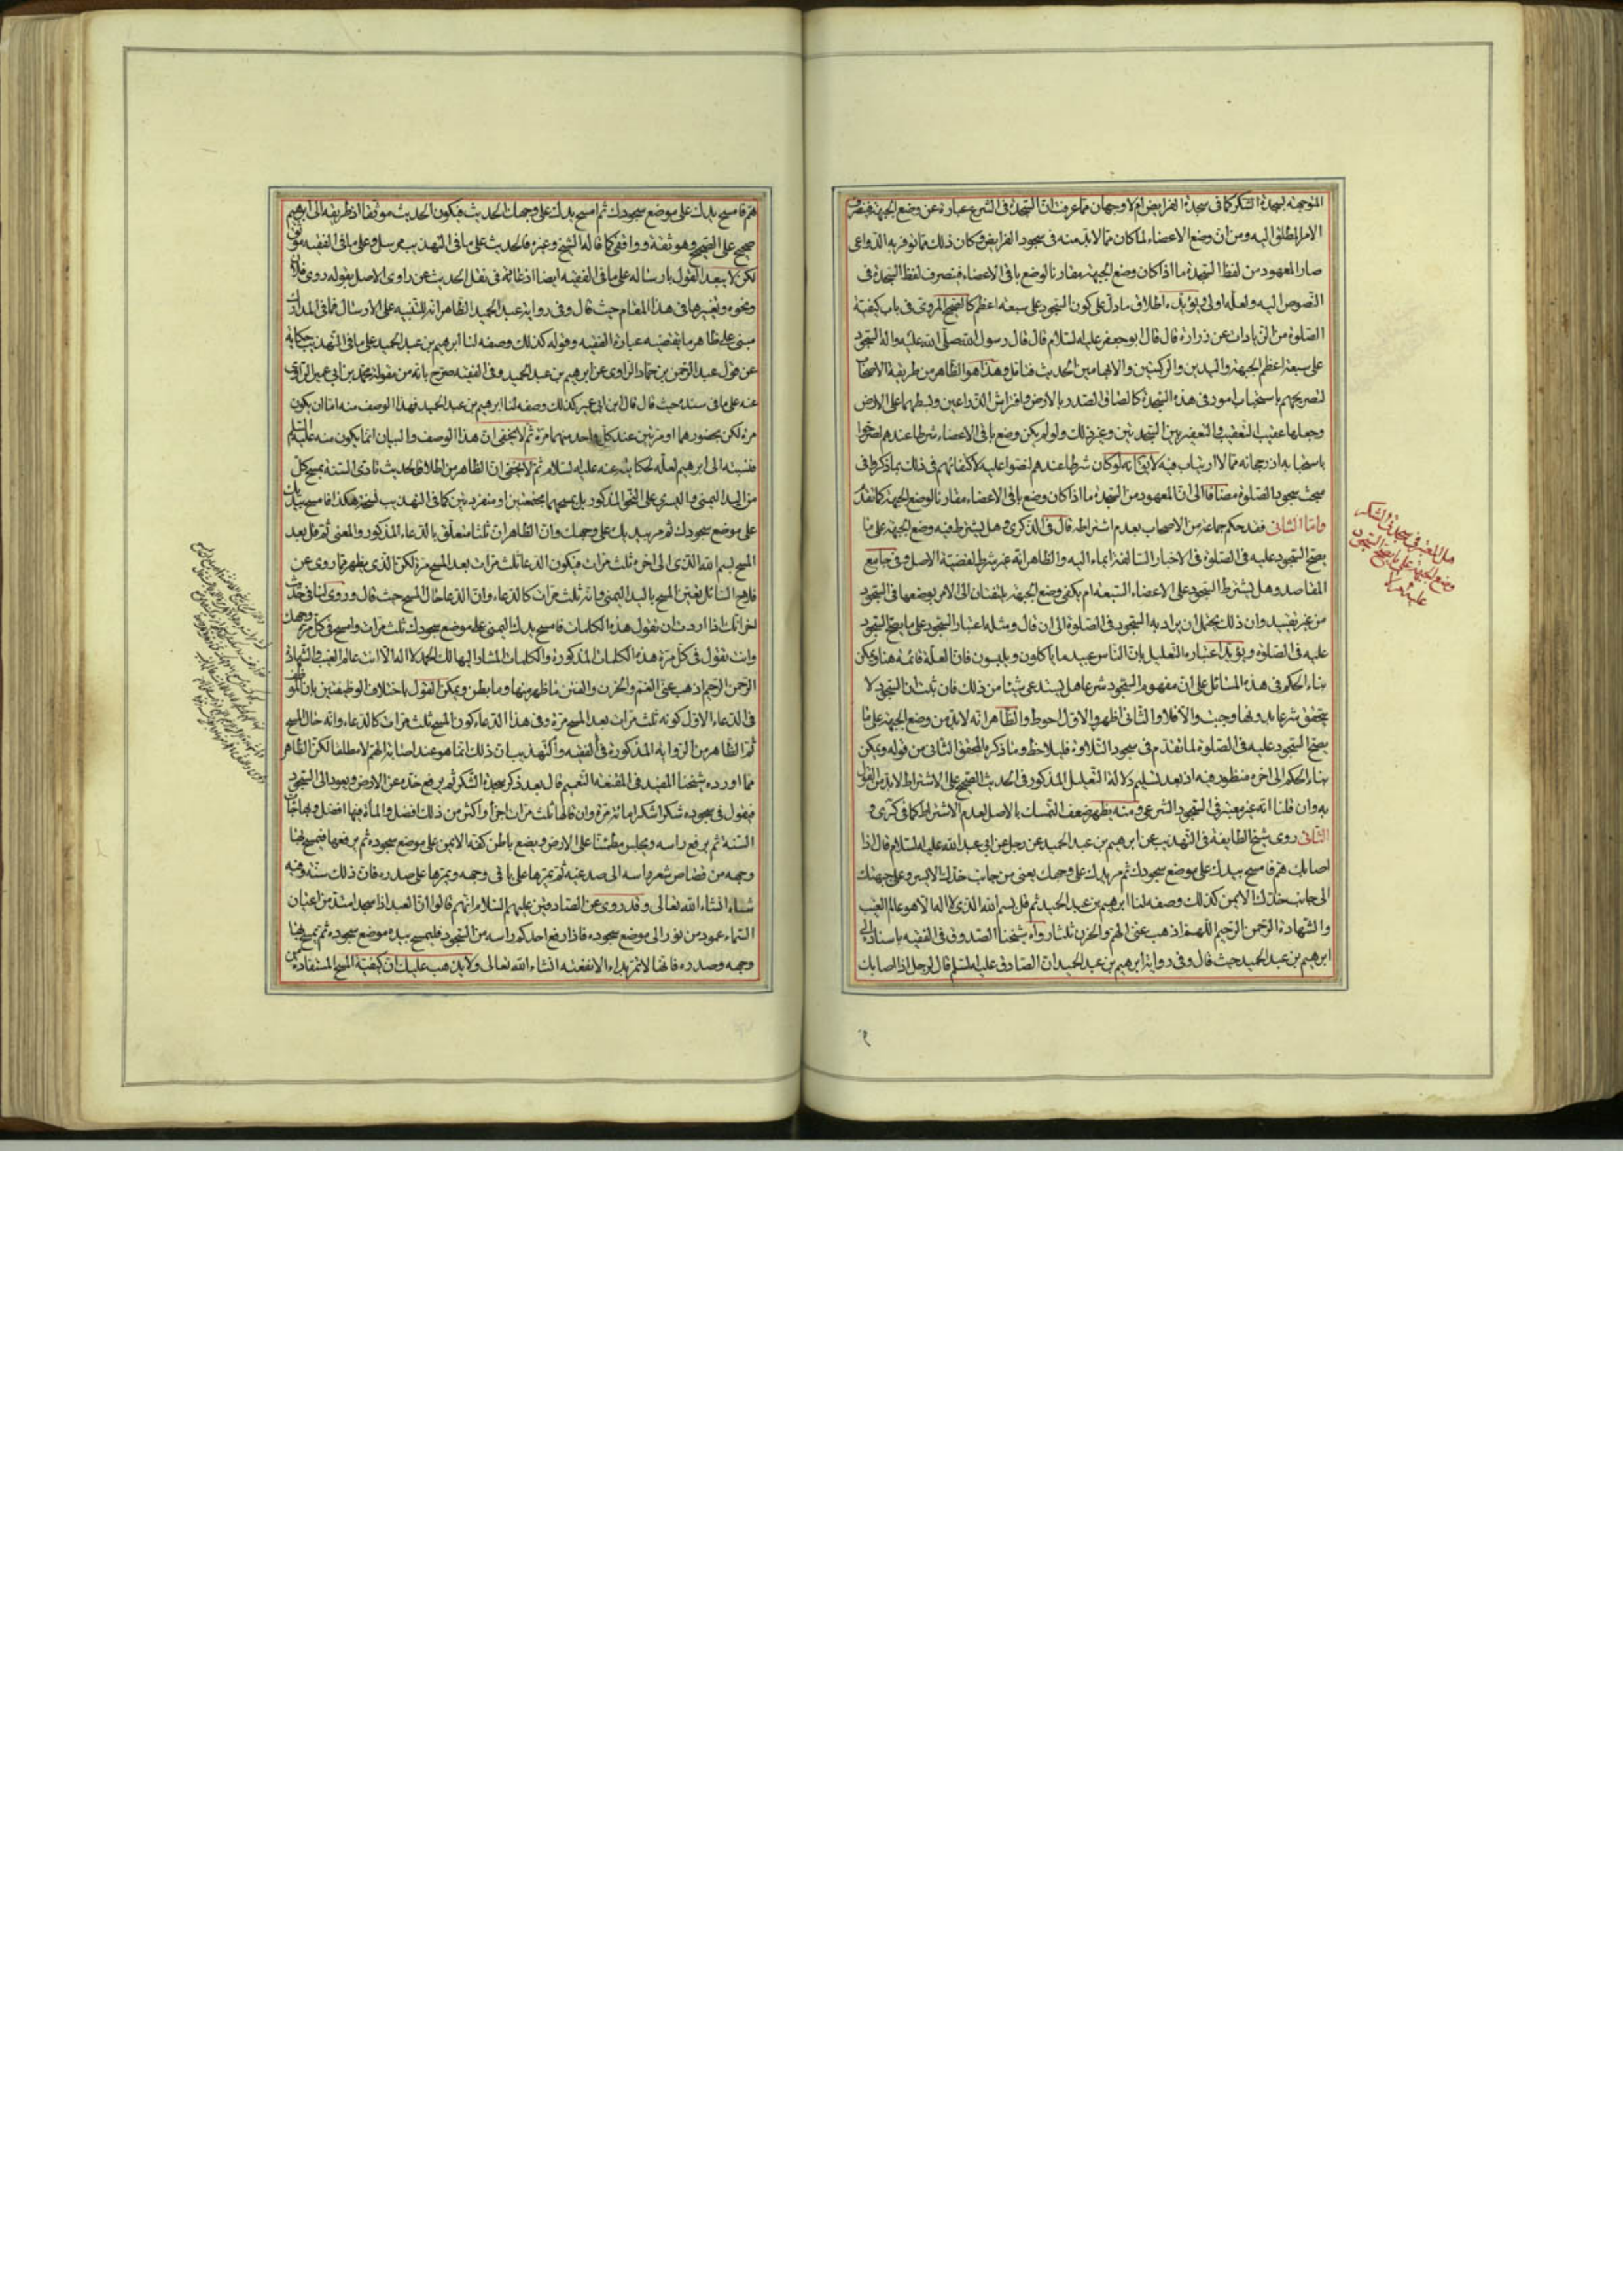 الموجبة لسجدة الشكر كما فى سجدة الفرايض ام لا وجهان مما عرفت ان السجدة فى الشرع عبارة عن وضع الجبهة فينصرف
الامر المطلق اليه ومن ان وضع الاعضاء لما كان مما لا بد منه فى سجود الفرايض وكان ذلك مما توفر به الدواعى
صار المعهود من لفظ السجدة ما اذا كان وضع الجبهة مقارنا لوضع باقى الاعضاء فينصرف لفظ السجدة فى
النصوص اليه ولعله اولى ويؤيده اطلاق ما دل على كون السجود على سبعة اعظم كالصحيح المروى فى باب كيفية
الصلوة من الزيادات عن زرارة قال قال ابو جعفر عليه السلام قال قال رسول الله صلى الله عليه واله السجود
على سبعة اعظم الجبهة واليدين والركبتين والابهامين الحديث فتامل وهذا هو الظاهر من طريقة الاصحاب
لتصريحهم باستحباب امور فى هذه السجدة كالصاق الصدر بالارض وافتراش الذراعين وبسطهما على الارض
وجعلها عقيب التعقيب والتعفير بين السجدتين وغير ذلك ولو لم يكن وضع باقى الاعضاء شرطا عندهم لصرحوا
باستحبابه اذ رجحانه مما لا ارتياب فيه لا يقال انه لو كان شرطا عندهم لنصوا عليه لاكتفائهم فى ذلك بما ذكروا فى
مبحث سجود الصلوة مضافا الى ان المعهود من السجدة ما اذا كان وضع باقى الاعضاء مقارنا لوضع الجبهة كما تقدم
واما الثانى فقد حكم جماعة من الاصحاب بعدم اشتراطه قال فى الذكرى وهل يشترط فيه وضع الجبهة على ما
يصح السجود عليه فى الصلوة فى الاخبار السالفة ايماء اليه والظاهر انه غير شرط لقضية الاصل وفى جامع
المقاصد وهل يشترط السجود على الاعضاء السبعة ام يكفى وضع الجبهة يلتفتان الى الامر بوضعها فى السجود
من غير تقييد وان ذلك يحتمل ان يراد به السجود فى الصلوة الى ان قال ومثله اعتبار السجود على ما يصح السجود
عليه فى الصلوة ويؤيد اعتباره التعليل بان الناس عبيد ما ياكلون ويلبسون فان العلة قائمة هنا ويمكن
بناء الحكم فى هذه المسائل على ان مفهوم السجود شرعا هل يستدعى شيئا من ذلك فان ثبت ان السجود لا
يتحقق شرعا بدونها وجبت والا فلا والثانى اظهر والاول احوط والظاهر انه لا بد من وضع الجبهة على ما
يصح السجود عليه فى الصلوة لما تقدم فى سجود التلاوة فليلاحظ وما ذكره المحقق الثانى من قوله ويمكن
بناء الحكم الى اخره منظور فيه اذ بعد تسليم دلالة التعليل المذكور فى الحديث الصحيح على الاشتراط لا بد من القول
به وان قلنا انه غير معتبر فى السجود الشرعى ومنه يظهر ضعف التمسك بالاصل لعدم الاشتراط كما فى كرى و
الثانى روى شيخ الطايفة فى التهذيب عن ابرهيم بن عبد الحميد عن رجل عن ابى عبد الله عليه السلام قال اذا
اصابك هم فامسح بيدك على موضع سجودك ثم مر يدك على وجهك يعنى من جانب خدك الايسر وعلى جبهتك
الى جانب خدك الايمن كذلك وصفه لنا ابرهيم بن عبد الحميد ثم قل بسم الله الذى لا اله الا هو عالم الغيب
والشهادة الرحمن الرحيم اللهم اذهب عنى الهم والحزن ثلثا رواه شيخنا الصدوق فى الفقيه باسناده الى
ابرهيم بن عبد الحميد حيث قال وفى رواية ابرهيم بن عبد الحميد ان الصادق عليه السلم قال لرجل اذا اصابك
هل المعتبر فى سجدة الشكر
وضع الجبهة على ما يصح السجود
عليه ام لا
هم فامسح يدك على موضع سجودك ثم امسح يدك على وجهك الحديث فيكون الحديث موثقا اذ طريقه الى ابرهيم
صحيح على الصحيح وهو ثقة وواقفى كما قاله الشيخ وغيره فالحديث على ما فى التهذيب مرسل وعلى ما فى الفقيه موثق
لكن لا يبعد القول بارساله على ما فى الفقيه ايضا اذ عادته فى نقل الحديث عن راوى الاصل بقوله روى فلان
ونحوه وتغييرها فى هذا المقام حيث قال وفى رواية عبد الحميد الظاهر انه للتنبيه على الارسال فما فى المدارك
مبنى على ظاهر ما يقتضيه عبارة الفقيه وقوله كذلك وصفه لنا ابرهيم بن عبد الحميد على ما فى التهذيب حكاية
عن قول عبد الرحمن بن حماد الراوى عن ابرهيم بن عبد الحميد وفى الفقيه صرح بانه من مقولة محمد بن ابى عمير الراوى
عنه على ما فى سنده حيث قال قال ابن ابى عمير كذلك وصفه لنا ابرهيم بن عبد الحميد فهذا الوصف منه اما ان يكون
مرة لكن بحضورهما او مرتين عند كل واحد منهما مرة ثم لا يخفى ان هذا الوصف والبيان انما يكون منه عليه السلم
فنسبته الى ابرهيم لعله لحكايته عنه عليه السلام ثم لا يخفى ان الظاهر من اطلاق الحديث تادى السنة بمسح كل
من اليد اليمنى واليسرى على النحو المذكور بل بمسحهما مجتمعتين او منفردتين كما فى التهذيب نسخة هكذا فامسح يدك
على موضع سجودك ثم مر بيدك على وجهك وان الظاهر ان ثلثا متعلق بالدعاء المذكور والمعنى ثم قل بعد
المسح بسم الله الذى الى اخره ثلث مرات فيكون الدعاء ثلث مرات بعد المسح مرة لكن الذى يظهر مما روى عن
فلاح السائل تعين المسح باليد اليمنى وانه ثلث مرات كالدعاء وان الدعاء حال المسح حيث قال وروى لنا فى حديث
اخر انك اذا اردت ان تقول هذه الكلمات فامسح يدك اليمنى على موضع سجودك ثلث مرات وامسح فى كل مرة وجهك
وانت تقول فى كل مرة هذه الكلمات المذكورة والكلمات المشار اليها لك الحمد لا اله الا انت عالم الغيب والشهادة
الرحمن الرحيم اذهب عنى الغم والحزن والفتن ما ظهر منها وما بطن ويمكن القول باختلاف الوظيفتين بان الموظف
فى الدعاء الاول كونه ثلث مرات بعد المسح مرة وفى هذا الدعاء كون المسح ثلث مرات كالدعاء وانه حال المسح
ثم الظاهر من الرواية المذكورة فى الفقيه والتهذيب ان ذلك انما هو عند اصابة الهم لا مطلقا لكن الظاهر
مما اورده شيخنا المفيد فى المقنعة التعميم قال بعد ذكر سجدة الشكر ثم يرفع خده عن الارض ويعود الى السجود
فيقول فى سجوده شكرا شكرا مائة مرة وان قالها ثلث مرات اجزأ واكثر من ذلك افضل والمأة فيها افضل وبها جاءت
السنة ثم يرفع راسه ويجلس مطمئنا على الارض ويضع باطن كفه الايمن على موضع سجوده ثم يرفعها فيمسح بها
وجهه من قصاص شعر راسه الى صدغيه ثم يمرها على باقى وجهه ويمرها على صدره فان ذلك سنة وفيه
شفاء انشاء الله تعالى وقد روى عن الصادقين عليهم السلام انهم قالوا ان العبد اذا سجد امتد من اعنان
السماء عمود من نور الى موضع سجوده فاذا رفع احدكم راسه من السجود فليمسح بيده موضع سجوده ثم يمسح بها
وجهه وصدره فانها لا تمر بداء الا نفعته انشاء الله تعالى ولا يذهب عليك ان كيفية المسح المستفادة من